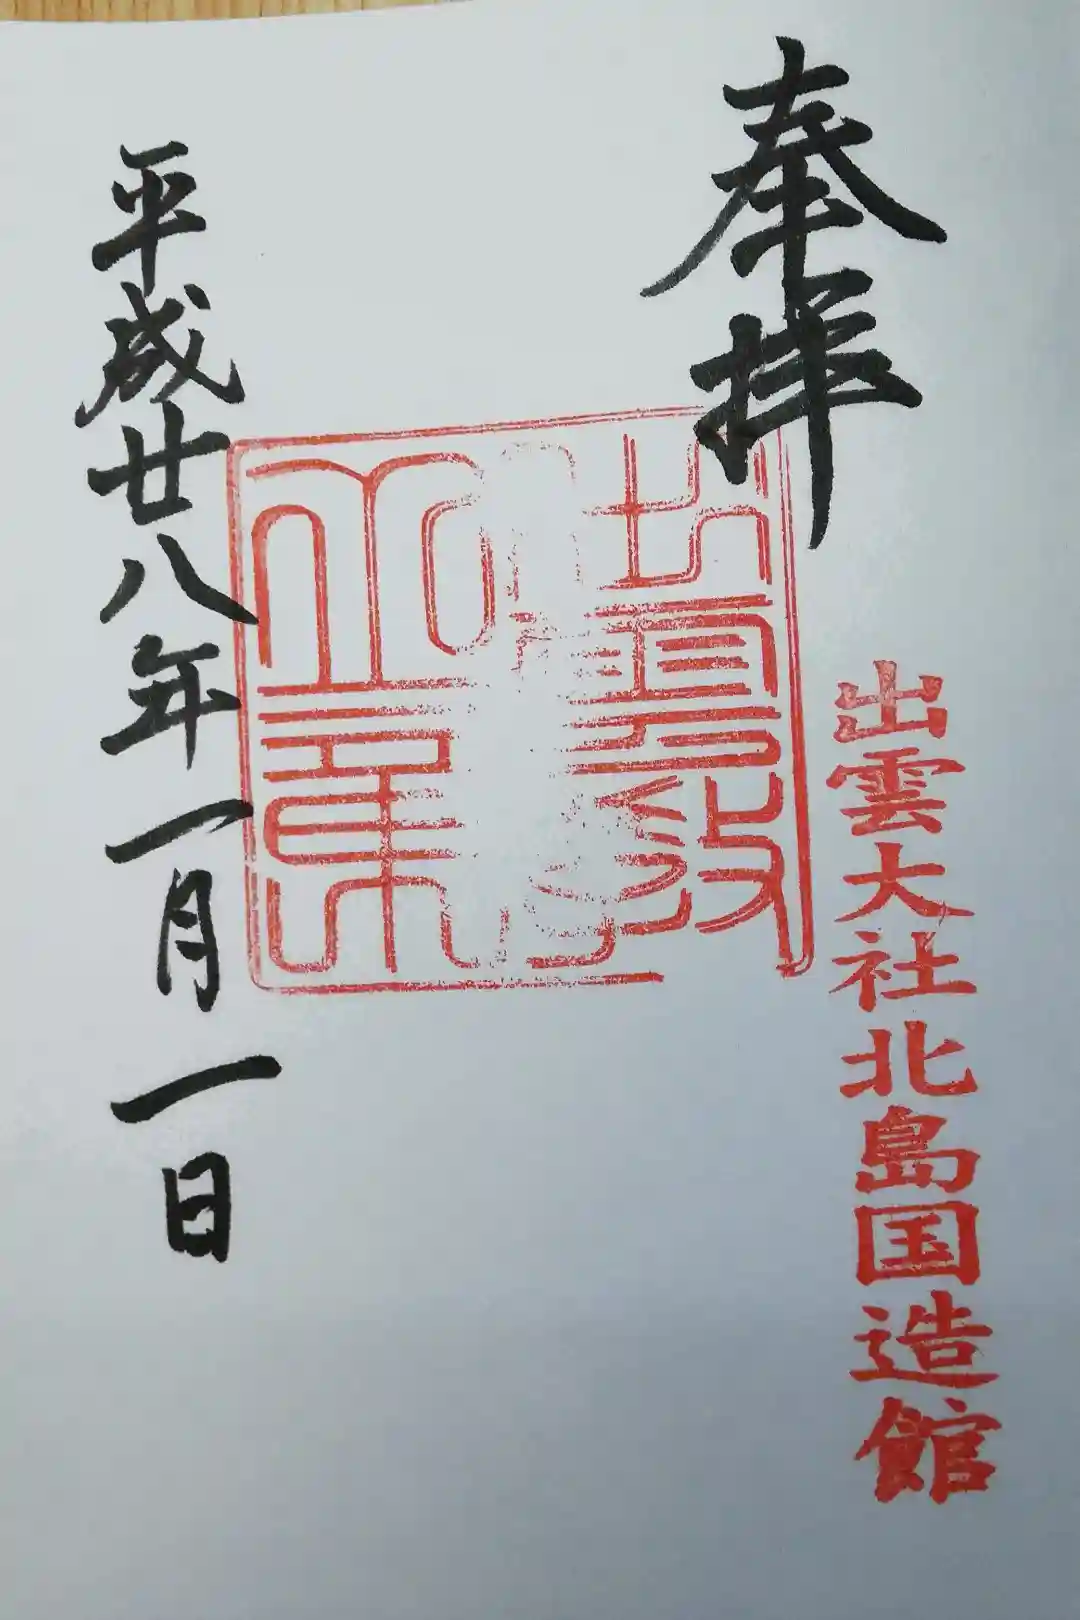 奉拝
出雲大社北島国造館
平成廿八年一月一日